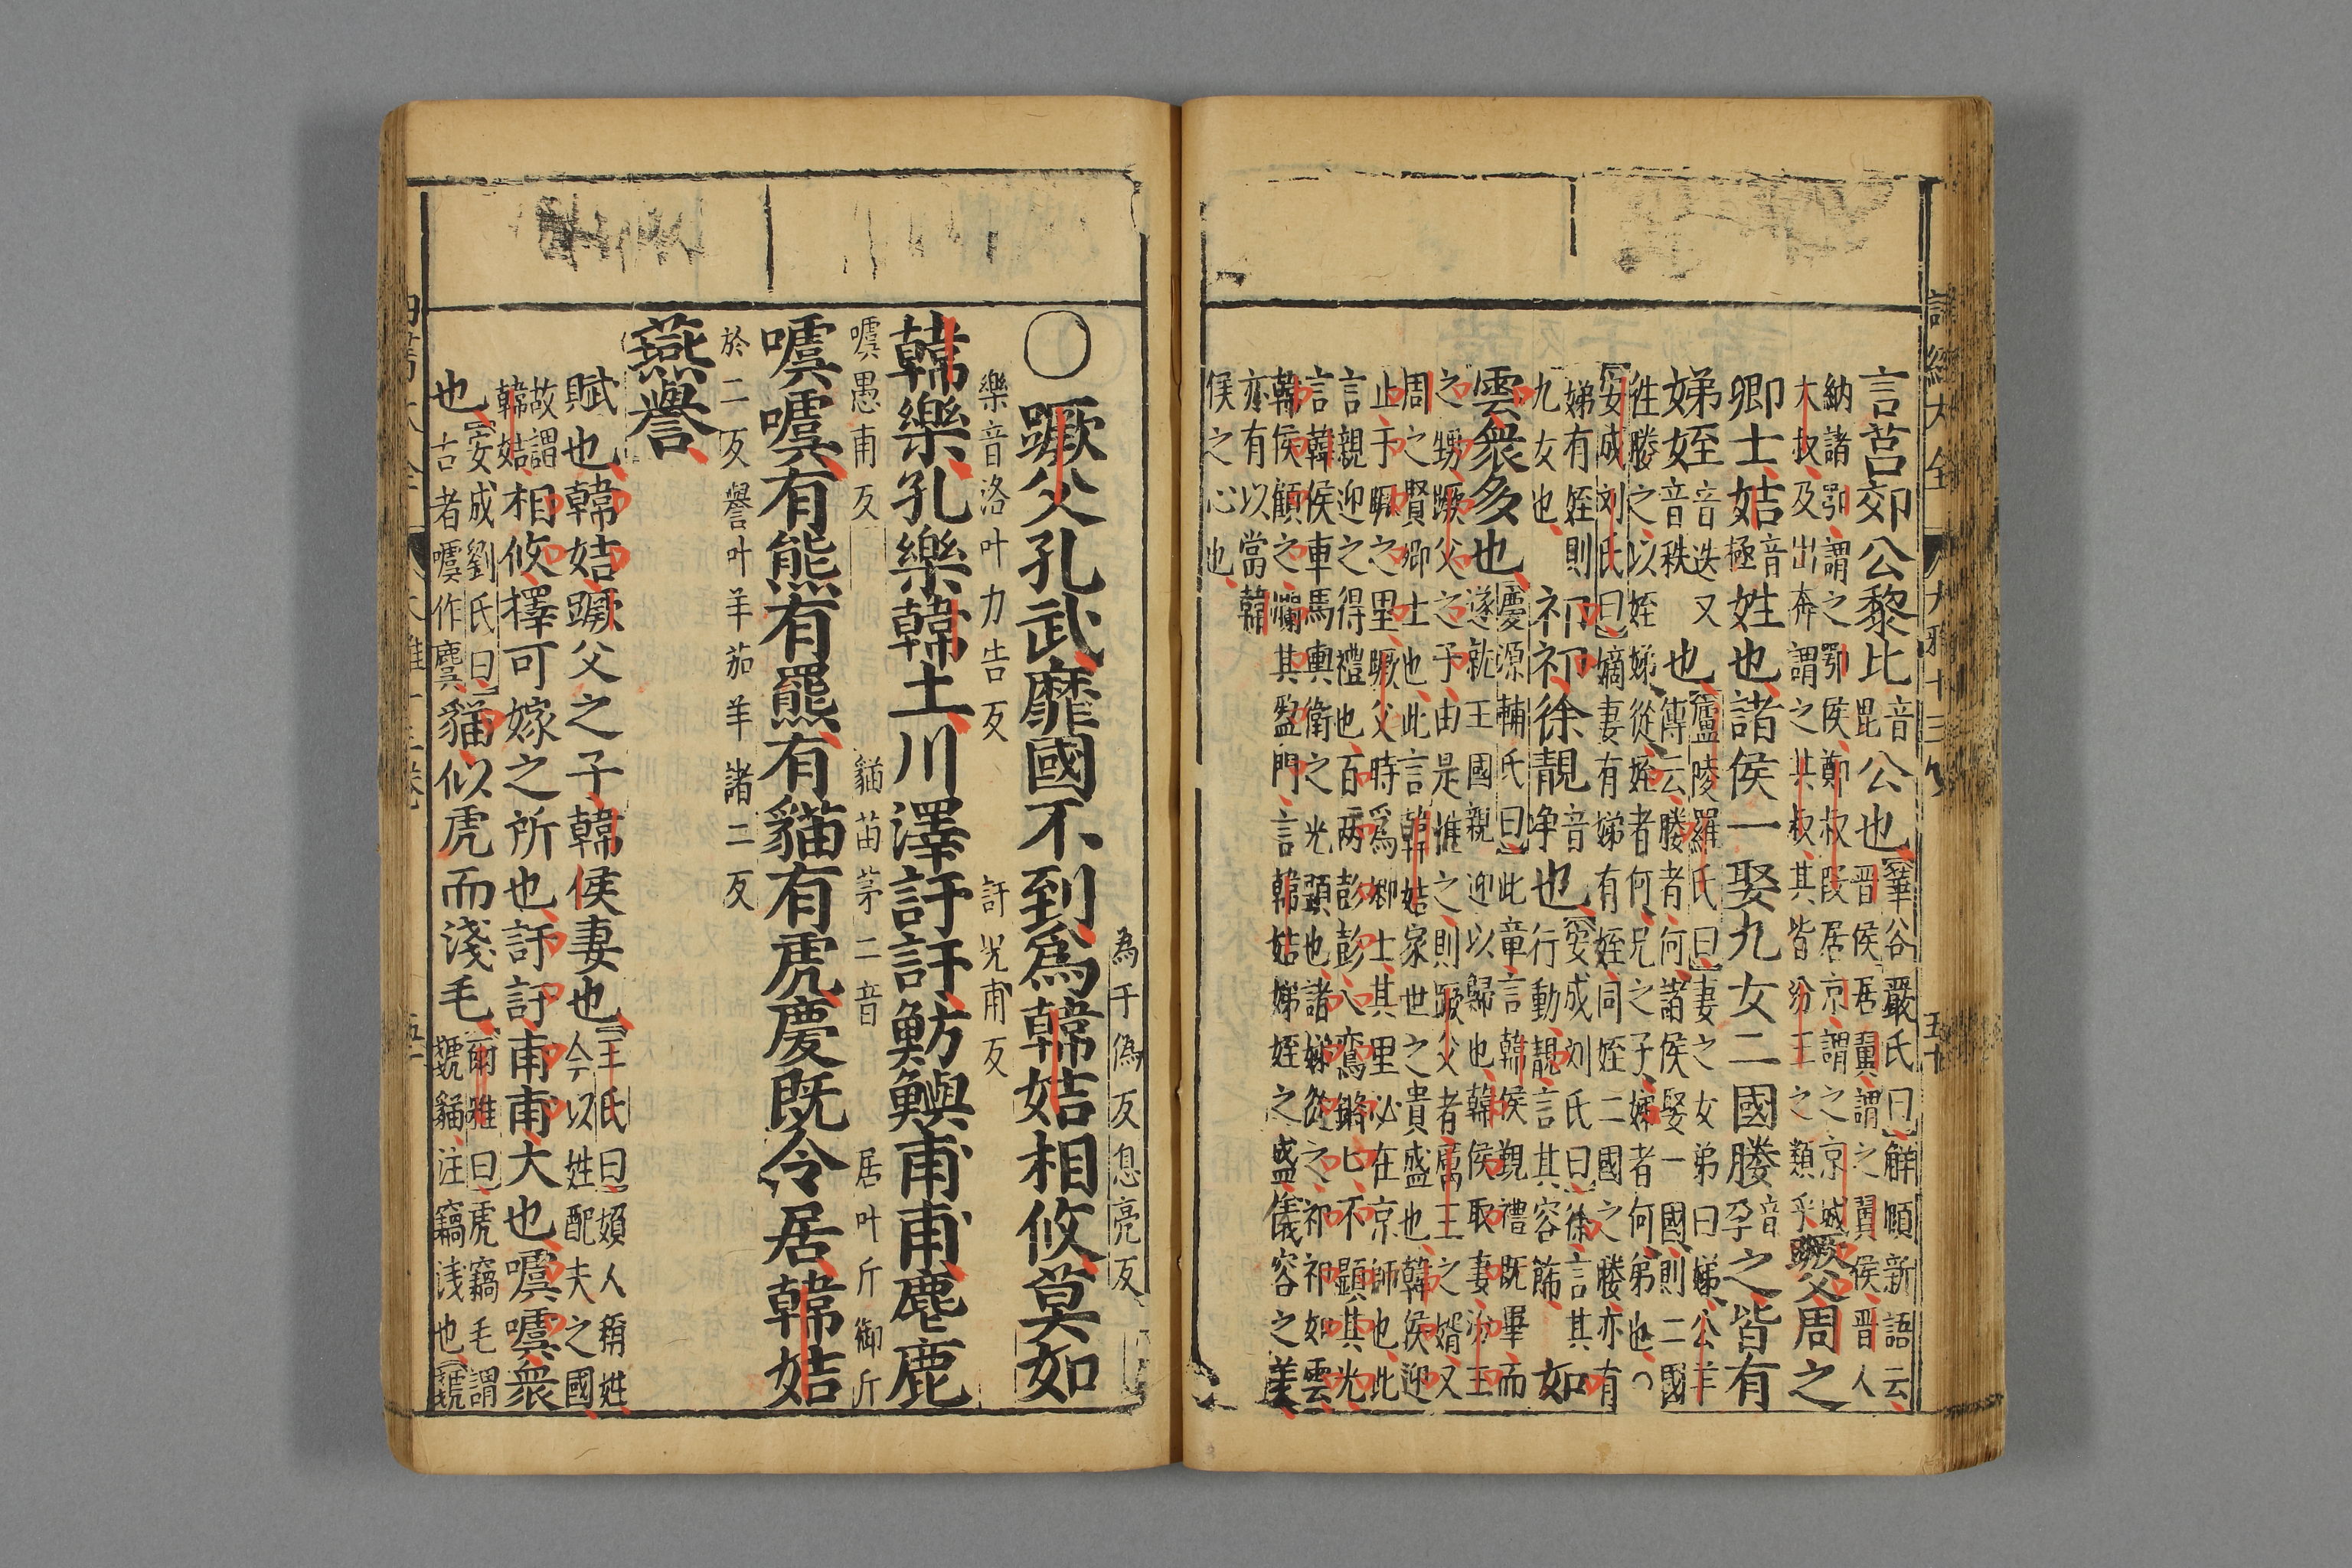 詩經大全 大雅十三 五十
言莒郊公黎比音毗公也【華谷嚴氏曰】觧頤新語云
晋侯居翼謂之翼侯晋人
納諸鄂謂之鄂侯鄭叔段居京謂之京城
大叔及出奔謂之共叔其皆汾王之類乎蹶父周之
卿士姞音極姓也諸侯一娶九女二國媵音孕之皆有
娣姪音迭又音秩也【廬陵羅氏曰】妻之女弟曰娣公羊
傳云媵者何諸侯娶一國則二國
徃媵之以姪娣從姪者何兄之子娣者何弟也○
【安成刘氏曰】嫡妻有娣有姪同姪二國之媵亦有
娣有姪則九女也祁祁徐靚音净也【安成刘氏曰】徐言其行動靚言其容飾如
雲衆多也【慶源輔氏曰】此章言韓侯覲禮既畢而
遂就王國親迎以歸也韓侯取妻汾王
之甥蹶父之子由是惟之則蹶父者厲王之婿又
周之賢卿士也此言韓姞家世之貴盛也韓侯迎
止于蹶之里蹶父時爲卿士其里必在京師也此
言親迎之得禮也百両彭彭八鸞鏘鏘不顯其光
言韓侯車馬輿衛之光顕也諸娣從之祁祁如雲
韓侯顧之爛其盈門言韓姞娣姪之盛儀容之美
亦有以當韓
侯之心也
為于偽反息亮反
○蹶父孔武靡國不到爲韓姞相攸莫如
樂音洛叶力告反 訏况甫反
韓樂孔樂韓土川澤訏訏魴鱮甫甫麀鹿
噳愚甫反 貓苗茅二音 居叶斤御斤
噳噳有熊有羆有貓有虎慶既令居韓姞
於二反譽叶羊茹羊諸二反
燕譽
賦也韓姞蹶父之子韓侯妻也【王氏曰】婦人稱姓
今以姓配夫之國
故謂韓姞相攸擇可嫁之所也訏訏甫甫大也噳噳衆
也【安成劉氏曰】古者噳作麌貓似虎而淺毛【爾雅曰】虎竊毛謂
虦貓注竊浅也【虦